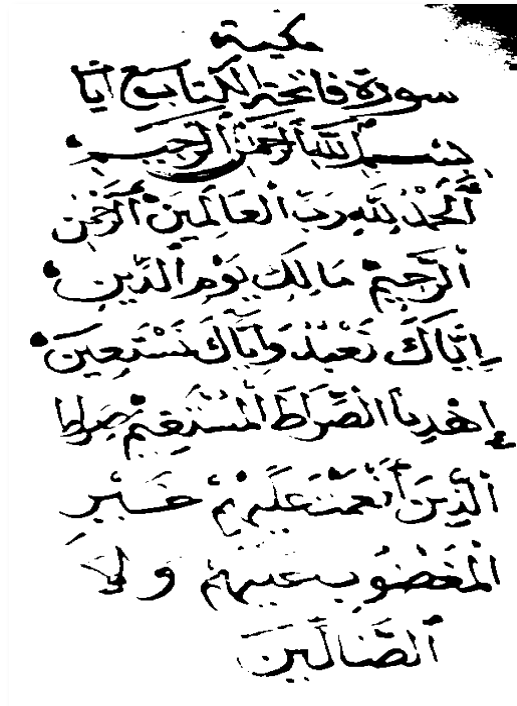 مكية
سورة فاتحة الكتاب سبع آيات
بسم الله الرحمن الرحيم
اَلْحَمْدُ لِلَّهِ رَبِّ الْعَالَمِينَ اَلرَّحْمٰنِ
الرَّحِيمِ مَالِكِ يَوْمِ الدِّينِ
إِيَّاكَ نَعْبُدُ وَإِيَّاكَ نَسْتَعِينُ
إِهْدِنَا الصِّرَاطَ الْمُسْتَقِيمَ صِرَاطَ
الَّذِينَ أَنْعَمْتَ عَلَيْهِمْ غَيْرِ
الْمَغْضُوبِ عَلَيْهِمْ وَلَا
الضَّالِّينَ